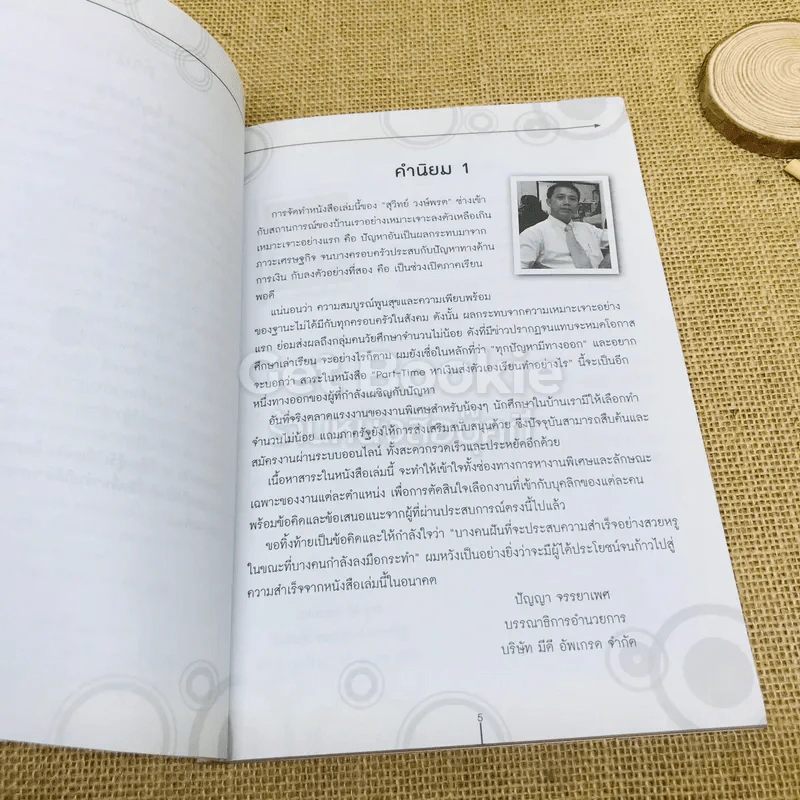 คำนิยม 1
การจัดทำหนังสือเล่มนี้ของ "สุวิทย์ วงษ์พรต" ช่างเข้า
กับสถานการณ์ของบ้านเราอย่างเหมาะเจาะลงตัวเหลือเกิน
เหมาะเจาะอย่างแรก คือ ปัญหาอันเป็นผลกระทบมาจาก
ภาวะเศรษฐกิจ จนบางครอบครัวประสบกับปัญหาทางด้าน
การเงิน กับลงตัวอย่างที่สอง คือ เป็นช่วงเปิดภาคเรียน
พอดี
แน่นอนว่า ความสมบูรณ์พูนสุขและความเพียบพร้อม
ของฐานะไม่ได้มีกับทุกครอบครัวในสังคม ดังนั้น ผลกระทบจากความเหมาะเจาะอย่าง
แรก ย่อมส่งผลถึงกลุ่มคนวัยศึกษาจำนวนไม่น้อย ดังที่มีข่าวปรากฏจนแทบจะหมดโอกาส
ศึกษาเล่าเรียน จะอย่างไรก็ตาม ผมยังเชื่อในหลักที่ว่า "ทุกปัญหามีทางออก" และอยาก
จะบอกว่า สาระในหนังสือ "Part-Time หาเงินส่งตัวเองเรียนทำอย่างไร" นี้จะเป็นอีก
หนึ่งทางออกของผู้ที่กำลังเผชิญกับปัญหา
อันที่จริงตลาดแรงงานของงานพิเศษสำหรับน้องๆ นักศึกษาในบ้านเรามีให้เลือกทำ
จำนวนไม่น้อย แถมภาครัฐยังให้การส่งเสริมสนับสนุนด้วย ซึ่งปัจจุบันสามารถสืบค้นและ
สมัครงานผ่านระบบออนไลน์ ทั้งสะดวกรวดเร็วและประหยัดอีกด้วย
เนื้อหาสาระในหนังสือเล่มนี้ จะทำให้เข้าใจทั้งช่องทางการหางานพิเศษและลักษณะ
เฉพาะของงานแต่ละตำแหน่ง เพื่อการตัดสินใจเลือกงานที่เข้ากับบุคลิกของแต่ละคน
พร้อมข้อคิดและข้อเสนอแนะจากผู้ที่ผ่านประสบการณ์ตรงนี้ไปแล้ว
ขอทิ้งท้ายเป็นข้อคิดและให้กำลังใจว่า "บางคนฝันที่จะประสบความสำเร็จอย่างสวยหรู
ในขณะที่บางคนกำลังลงมือกระทำ" ผมหวังเป็นอย่างยิ่งว่าจะมีผู้ได้ประโยชน์จนก้าวไปสู่
ความสำเร็จจากหนังสือเล่มนี้ในอนาคต
ปัญญา จรรยาเพศ
บรรณาธิการอำนวยการ
บริษัท มีดี อัพเกรด จำกัด
5
Get Bookie